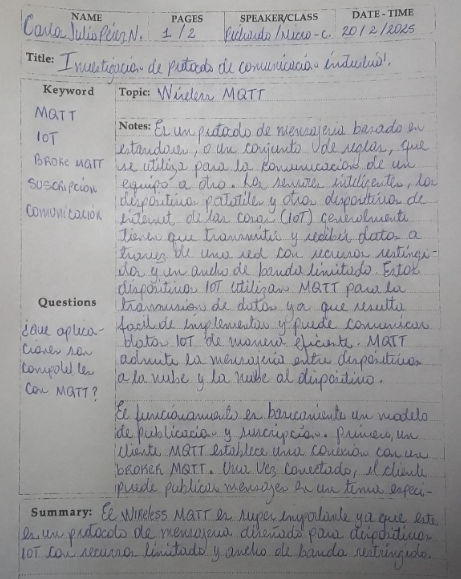 NAME PAGES SPEAKER/CLASS DATE - TIME
Carla Julio Pérez N. 1/2 Pichardo/Micro-c. 20/2/2025
Title: Investigación de protocolo de comunicación industrial.
Keyword Topic: Wireless MQTT
MQTT
IOT
BROKE MQTT
SUSCRIPCIÓN
COMUNICACIÓN
Notes: Es un protocolo de mensajeria basado en
estándares, o un conjunto de reglas, que
se utiliza para la comunicación de un
equipo a otro. Los sensores inteligentes, los
dispositivos portatiles y otros dispositivos de
internet de las cosas (IOT) generalmente
tienen que transmitir y recibir datos a
traves de una red con recursos restringi-
dos y un ancho de banda limitado. Estos
dispositivos IOT utilizan MQTT para la
transmision de datos ya que resulta
facil de implementar y puede comunicar
datos IOT de manera eficiente. MQTT
admite la mensajeria entre dispositivos
a la nube y la nube al dispositivo.
Questions
¿Que aplica-
ciones son
compatibles
con MQTT?
El funcionamiento es basicamente un modelo
de publicación y suscripción. Primero, un
cliente MQTT establece una conexión con un
BROKER MQTT. Una vez conectado, el cliente
puede publicar mensajes en un tema especi-
Summary: El Wireless MQTT es super importante ya que este
es un protocolo de mensajeria diseñado para dispositivos
IOT con recursos limitado y ancho de banda restringido.